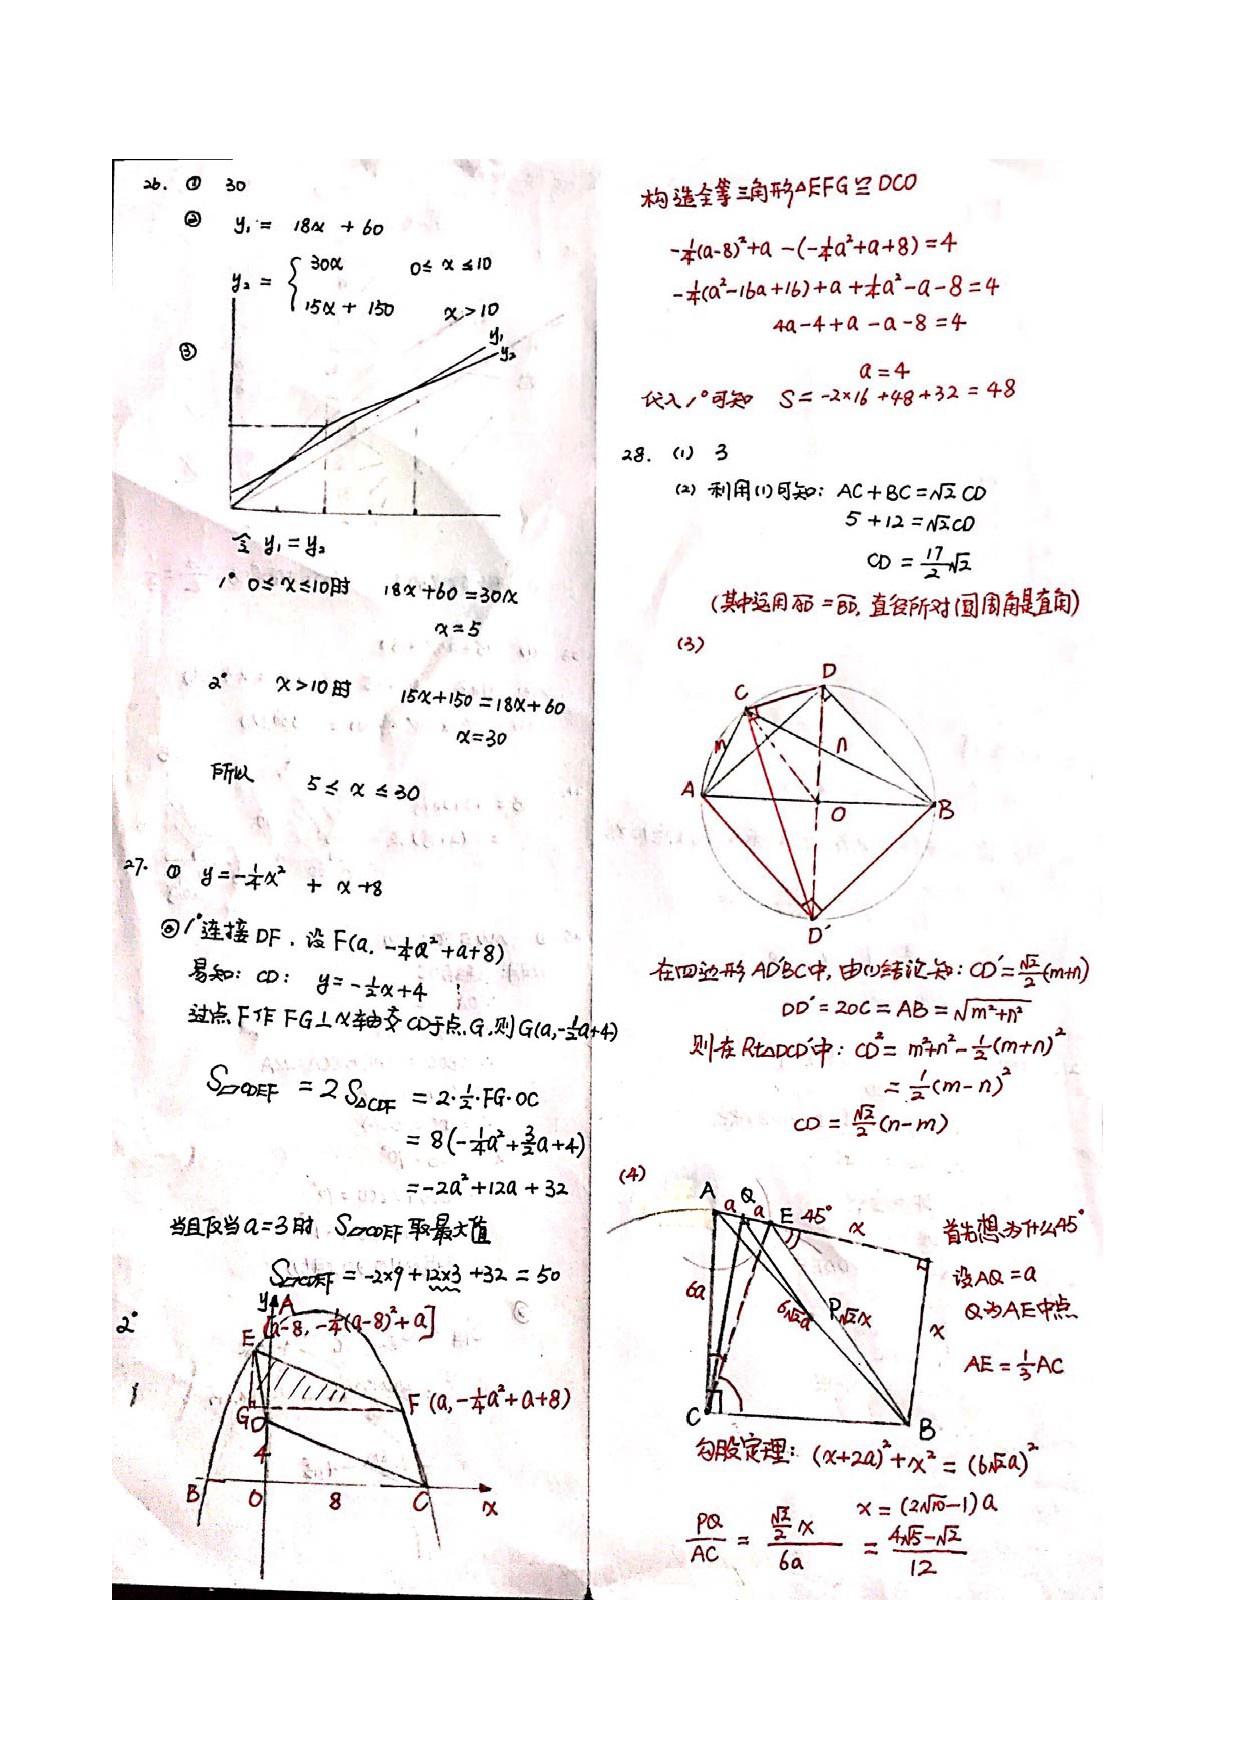 26. ① 30
② y₁ = 18x + 60
y₂ = { 30x 0≤x≤10
15x + 150 x>10
③
y₁
y₂
令 y₁=y₂
1° 0≤x≤10时 18x+60=30x
x=5
2° x>10时 15x+150=18x+60
x=30
所以 5≤x≤30
27. ① y=-¼x² + x+8
②1°连接DF. 设F(a, -¼a²+a+8)
易知: CD: y=-½x+4
过点F作FG⊥x轴交CD于点G,则G(a,-½a+4)
S▱CDEF = 2S△CDF = 2·½·FG·OC
= 8(-¼a²+3/2a+4)
=-2a²+12a+32
当且仅当a=3时 S▱CDEF取最大值
S▱CDEF = -2×9+12×3+32=50
2°
y A
[a-8, -¼(a-8)²+a]
E
F (a,-¼a²+a+8)
G D
4
B O 8 C x
构造全等三角形△EFG≌DCO
-¼(a-8)²+a-(-¼a²+a+8)=4
-¼(a²-16a+16)+a+¼a²-a-8=4
4a-4+a-a-8=4
a=4
代入1°可知 S=-2×16+48+32=48
28. (1) 3
(2) 利用(1)可知: AC+BC=√2CD
5+12=√2CD
CD = 17/2√2
(其中运用AD=BD, 直径所对圆周角是直角)
(3)
D
C
m n
A O B
D′
在四边形AD′BC中, 由(1)结论知: CD′=√2/2(m+n)
DD′=2OC=AB=√m²+n²
则在Rt△DCD′中: CD²=m²+n²-½(m+n)²
=½(m-n)²
CD=√2/2(n-m)
(4)
A a Q a E 45° x
6a 6√2a P √2x x
C B
首先想为什么45°
设AQ=a
Q为AE中点
AE=⅓AC
勾股定理: (x+2a)²+x²=(6√2a)²
x=(2√10-1)a
PQ/AC = √2/2 x/6a = 4√5-√2/12